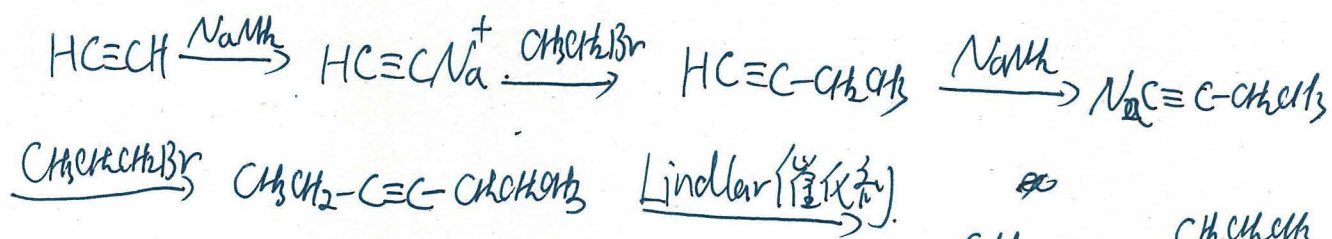 HC≡CH NaNH₂→ HC≡CNa⁺ CH₃CH₂Br→ HC≡C-CH₂CH₃ NaNH₂→ NaC≡C-CH₂CH₃
CH₃CH₂CH₂Br→ CH₃CH₂-C≡C-CH₂CH₂CH₃ Lindlar催化剂→